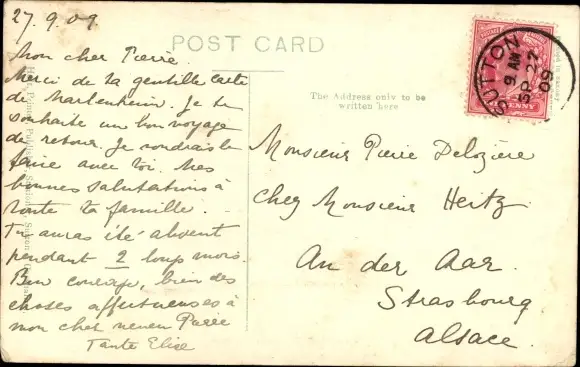 27.9.09
POST CARD
Mon cher Pierre.
Merci de ta gentille carte
de Marlenheim. Je te
souhaite un bon voyage
de retour. Je voudrais le
faire avec toi. Mes
bonnes salutations à
toute ta famille.
Tu auras été absent
pendant 2 longs mois.
Bon courage, bien des
choses affectueuses à
mon cher neveu Pierre
Tante Elise
The Address only to be
written here
SUTTON
9 AM
SP 27
09
PENNY
Monsieur Pierre Delozière
chez Monsieur Heitz
An der Aar.
Strasbourg
Alsace.